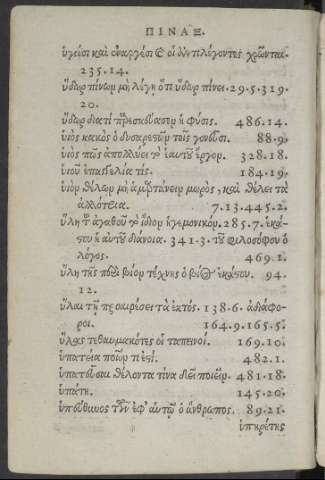 ΠΙΝΑΞ.
ὑγιέσι καὶ ἐναργέσι οἱ ἀντιλέγοντες χρῶνται.
235.14.
ὕδωρ πίνωμ μὴ λέγη ὅτι ὕδωρ πίνει. 29.5.319.
20.
ὕδωρ διατί πρεσβύτατομ ἡ φύσις. 486.14.
υἱὸς κακὸς ὁ δυσαρεστῶμ τοῖς γονεῦσι. 88.9.
υἱὸς πῶς ἀπολλύει τὸ ἑαυτοῦ ἔργομ. 328.18.
υἱοῦ ἐπαγγελία τίς. 184.19.
υἱὸμ θέλωμ μὴ ἁμαρτάνειμ μωρὸς, καὶ θέλει τὰ
ἀλλότρια. 7.13.445.2.
ὕλη τοῦ ἀγαθοῦ τὸ ἴδιομ ἡγεμονικόμ. 285.7. ἑκά-
στου ἡ αὐτοῦ διάνοια. 341.3. τοῦ φιλοσόφου ὁ
λόγος. 469.1.
ὕλη τῆς περὶ βίομ τέχνης ὁ βίος ἑκάστου. 94.
12.
ὕλαι τῇ προαιρέσει τὰ ἐκτός. 138.6. ἀδιάφο-
ροι. 164.9.165.5.
ὕλας τεθαυμακότες οἱ ταπεινοί. 169.10.
ὑπατεία ποῖόμ τι ἐστί. 482.1.
ὑπατεῦσαι θέλοντα τίνα δεῖ ποιεῖμ. 481.18.
ὑπάτη. 145.20.
ὑπεύθυνος τῶν ἐφ' αὑτῷ ὁ ἄνθρωπος. 89.21.
ὑπηρέτης